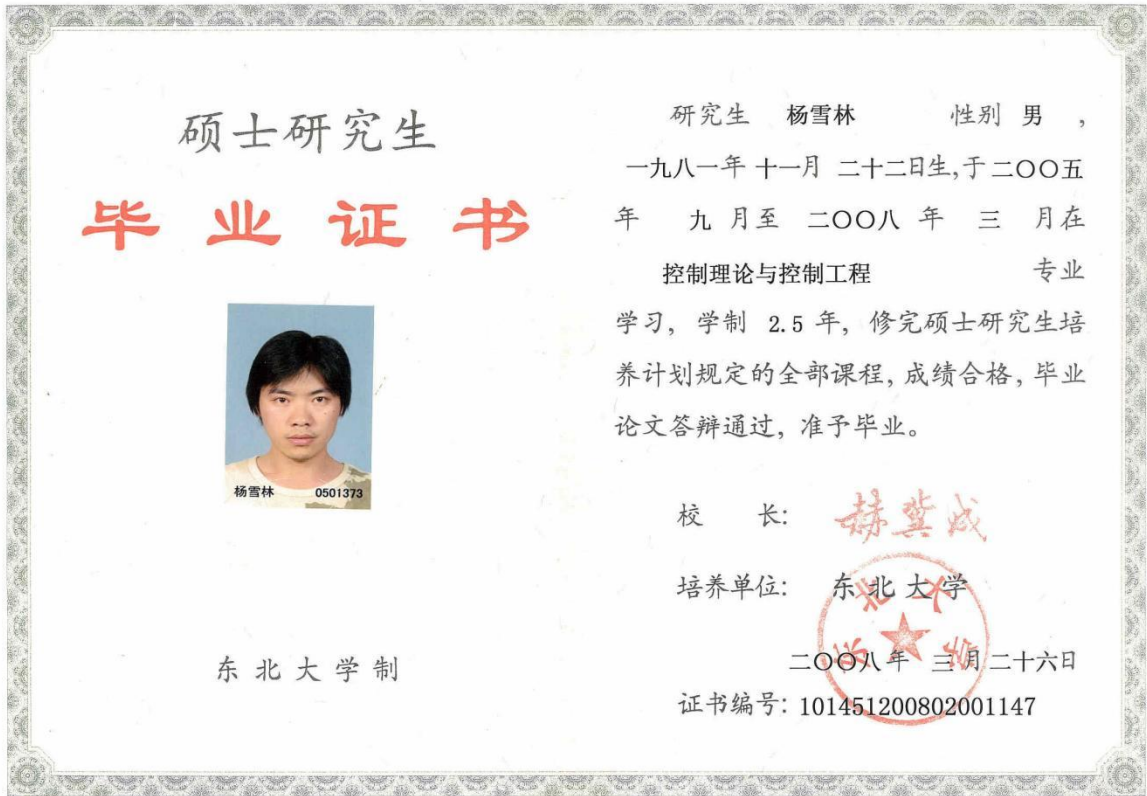 硕士研究生
毕业证书
杨雪林 0501373
东北大学制
研究生 杨雪林 性别 男 ,
一九八一年 十一月 二十二日生,于 二〇〇五
年 九 月至 二〇〇八 年 三 月在
控制理论与控制工程 专业
学习, 学制 2.5 年, 修完硕士研究生培
养计划规定的全部课程, 成绩合格, 毕业
论文答辩通过, 准予毕业。
校 长: 赫冀成
培养单位: 东北大学
东北大学
二〇〇八年 三月 二十六日
证书编号: 101451200802001147